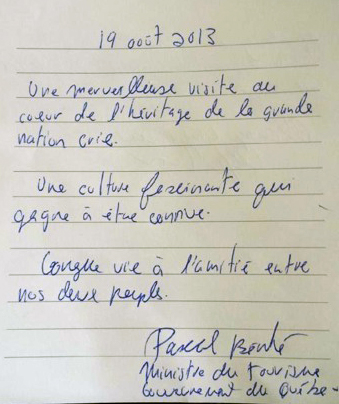 19 août 2013
Une merveilleuse visite au
coeur de l'héritage de la grande
nation crie.
Une culture fascinante qui
gagne à être connue.
Longue vie à l'amitié entre
nos deux peuples.
Pascal Bérubé
Ministre du tourisme
Gouvernement du Québec